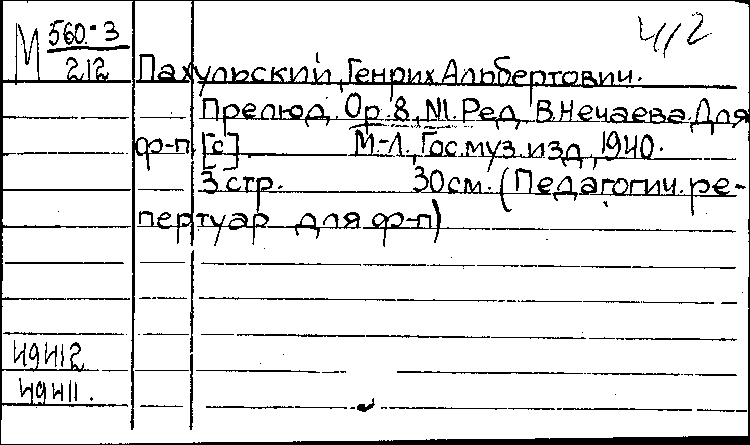 М 560-3
212
4/2
Пахульский, Генрих Альбертович.
Прелюд. Ор. 8, №1. Ред. В. Нечаева. Для
ф-п. [c] М-Л., Гос. муз. изд., 1940.
3 стр. 30 см. (Педагогич. ре-
пертуар для ф-п)
49412
49411.